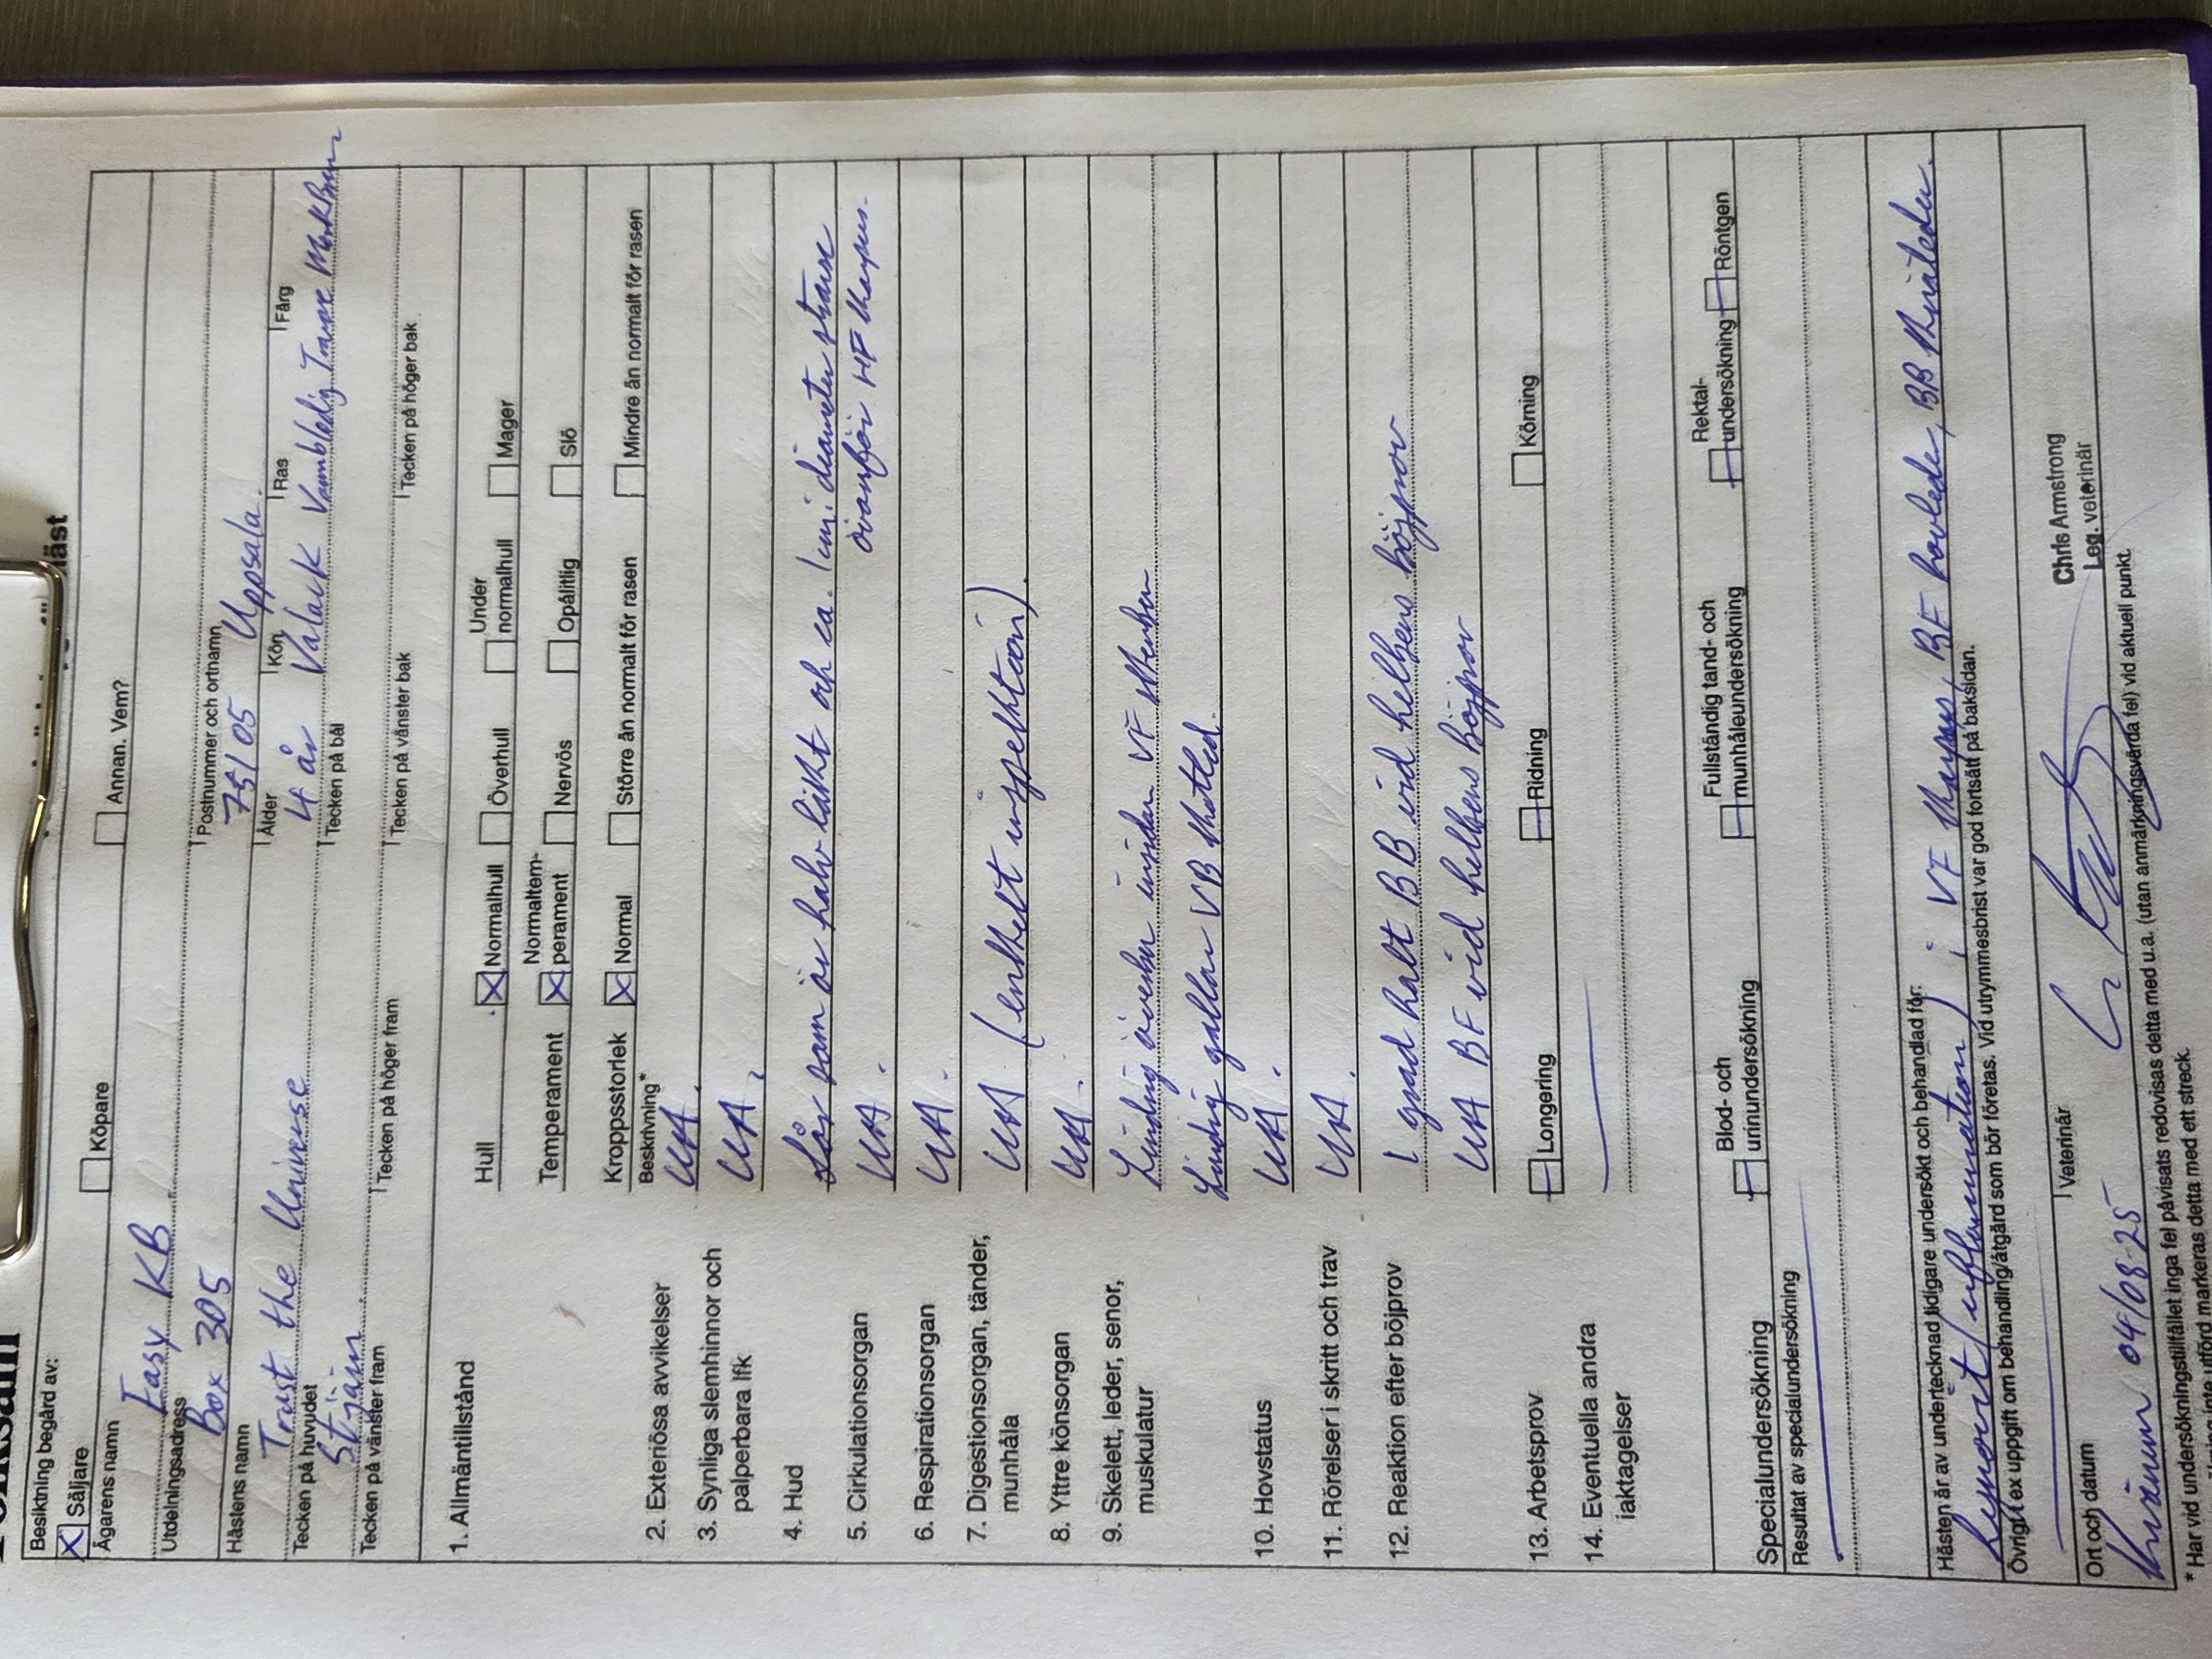 Besiktning begärd av:
☒ Säljare ☐ Köpare ☐ Annan. Vem?
Ägarens namn
Easy KB
Utdelningsadress Postnummer och ortnamn
Box 305 751 05 Uppsala.
Hästens namn Ålder Kön Ras Färg
Trust the Universe 4 år Valack Varmblodig Travare Mörkbrun
Tecken på huvudet Tecken på bål
Stjärn
Tecken på vänster fram Tecken på höger fram Tecken på vänster bak Tecken på höger bak
1. Allmäntillstånd
Hull ☒ Normalhull ☐ Överhull ☐ Under normalhull ☐ Mager
Temperament ☒ Normaltemperament ☐ Nervös ☐ Opålitlig ☐ Slö
Kroppsstorlek ☒ Normal ☐ Större än normalt för rasen ☐ Mindre än normalt för rasen
Beskrivning*
2. Exteriösa avvikelser UA.
3. Synliga slemhinnor och palperbara lfk UA.
4. Hud Sår som är halv läkt och ca. 1 cm. diameter strax
ovanför HF karpus.
5. Cirkulationsorgan UA.
6. Respirationsorgan UA.
7. Digestionsorgan, tänder, munhåla UA (enkelt inspektion).
8. Yttre könsorgan UA.
9. Skelett, leder, senor, muskulatur Lindrig överben insidan VF skenben
Lindrig gallor VB kotled.
10. Hovstatus UA.
11. Rörelser i skritt och trav UA.
12. Reaktion efter böjprov 1 grad halt BB vid helbens böjprov
UA BF vid helbens böjprov
13. Arbetsprov Longering Ridning Körning
14. Eventuella andra iakttagelser
Specialundersökning Blod- och urinundersökning Fullständig tand- och munhåleundersökning Rektalundersökning Röntgen
Resultat av specialundersökning
Hästen är av undertecknad tidigare undersökt och behandlad för:
Synovit/inflammation i VF karpus, BF hovleder, BB knäleder.
Övrigt ex uppgift om behandling/åtgärd som bör företas. Vid utrymmesbrist var god fortsätt på baksidan.
Ort och datum Veterinär
04/08-25
Chris Armstrong
Leg. veterinär
* Har vid undersökningstillfället inga fel påvisats redovisas detta med u.a. (utan anmärkningsvärda fel) vid aktuell punkt.
markeras detta med ett streck.